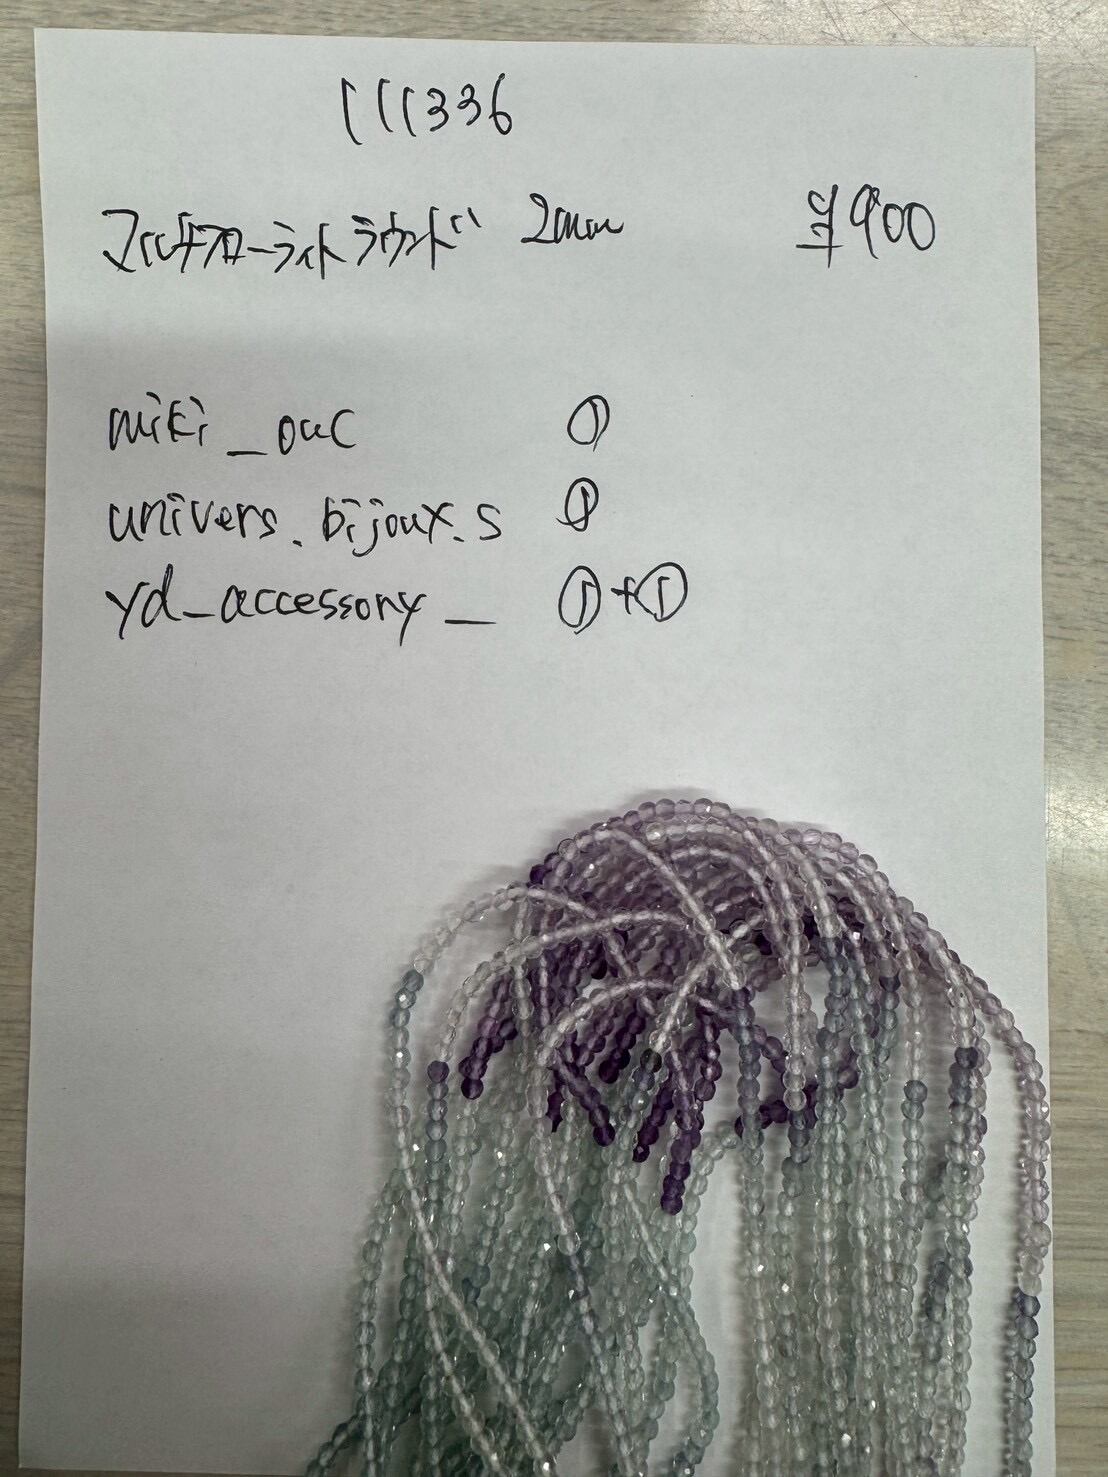 111336
マルチフローライトラウンド 2mm ¥900
miki_ouc ①
univers.bijoux.s ①
yd_accessory_ ①+①